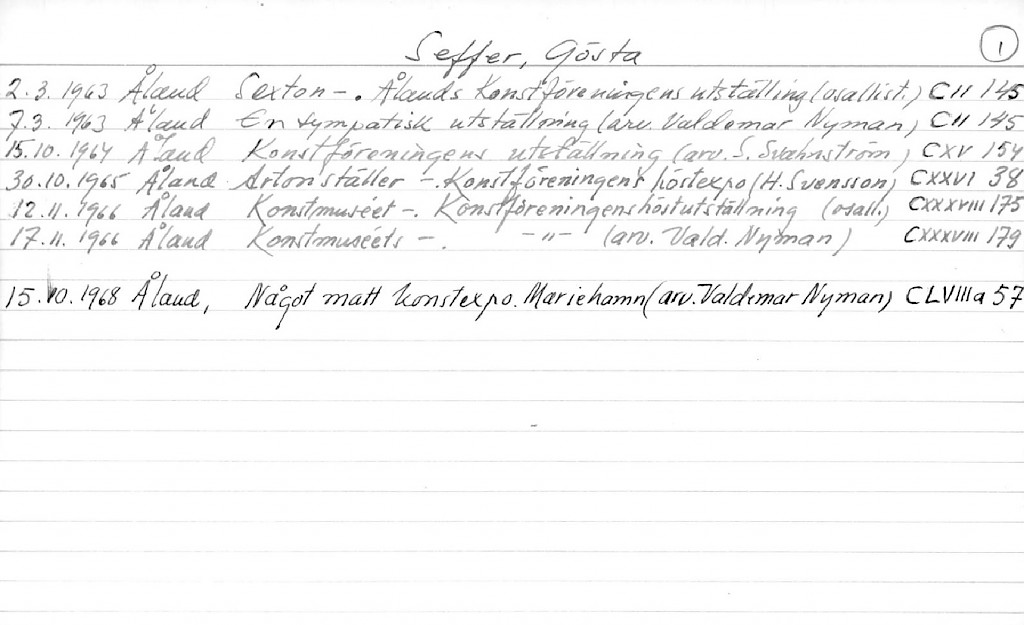 Seffer, Gösta
1
2.3.1963 Åland Sexton -. Ålands Konstföreningens utställing (osallist.) CII 145
7.3.1963 Åland En sympatisk utställning (arv. Valdemar Nyman) CII 145
15.10.1964 Åland Konstföreningens utställning (arv. S. Svahnström) CXV 154
30.10.1965 Åland Arton ställer -. Konstföreningens höstexpo (H. Svensson) CXXVI 38
12.11.1966 Åland Konstmuséet -. Konstföreningens höstutställning (osall.) CXXXVIII 175
17.11.1966 Åland Konstmuséets -. -"- (arv. Vald. Nyman) CXXXVIII 179
15.10.1968 Åland, Något matt konstexpo. Mariehamn (arv. Valdemar Nyman) CLVIIIa 57